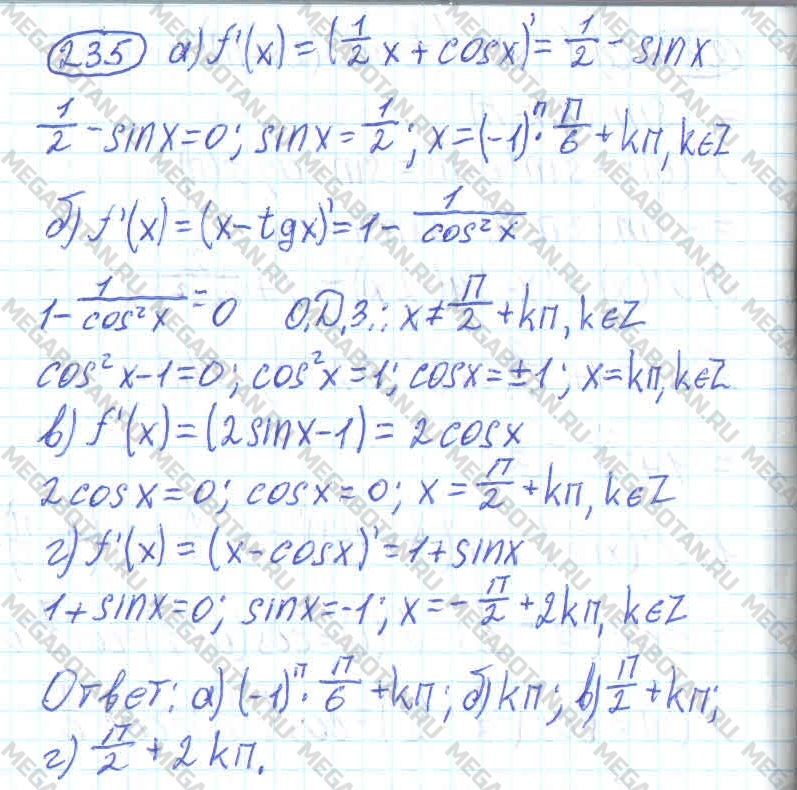 235 а) f'(x) = (1/2 x + cosx)' = 1/2 - sinx
1/2 - sinx=0; sinx= 1/2; x=(-1)ⁿ· π/6 + kπ, k∈Z
б) f'(x) = (x-tgx)' = 1- 1/cos²x
1- 1/cos²x = 0 О.Д.З.: x ≠ π/2 + kπ, k∈Z
cos²x-1=0; cos²x=1; cosx=±1; x=kπ, k∈Z
в) f'(x) = (2sinx-1) = 2cosx
2cosx=0; cosx=0; x= π/2 + kπ, k∈Z
г) f'(x) = (x-cosx)' = 1+sinx
1+sinx=0; sinx=-1; x=- π/2 +2kπ, k∈Z
Ответ: а) (-1)ⁿ· π/6 + kπ; б) kπ; в) π/2 + kπ;
г) π/2 + 2kπ.
MEGABOTAN.RU